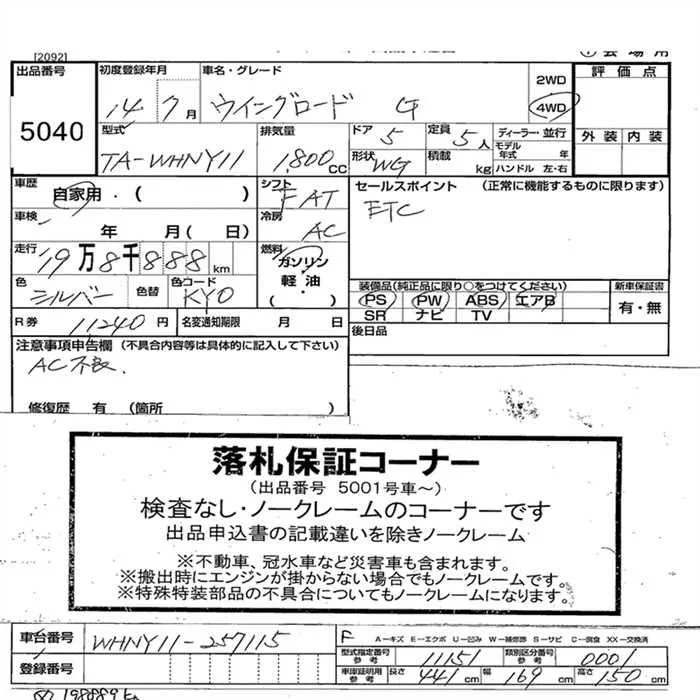 [2092]
出品番号 5040
初度登録年月 14 7月
車名・グレード ウイングロード G
2WD
4WD
評価点
外装 内装
型式 TA-WHNY11
排気量 1,800CC
ドア 5
定員 5人
ディーラー・並行
形状 WG
積載 kg
モデル年式 年
ハンドル 左・右
車歴 自家用・( )
シフト FAT
セールスポイント (正常に機能するものに限ります)
ETC
車検 年 月(日)
冷房 AC
走行 19万8千888km
燃料 ガソリン
軽油
( ・ )
色 シルバー 色替
色コード KY0
装備品(純正品に限り○をつけてください)
新車保証書
PS PW ABS エアB
有・無
SR ナビ TV
R券 11,240円
名変通知期限 月 日
後日品
注意事項申告欄 (不具合内容等は具体的に記入して下さい)
AC不良.
修復歴 有 (箇所 )
落札保証コーナー
(出品番号 5001号車~)
検査なし・ノークレームのコーナーです
出品申込書の記載違いを除きノークレーム
※不動車、冠水車など災害車も含まれます。
※搬出時にエンジンが掛からない場合でもノークレームです。
※特殊特装部品の不具合についてもノークレームになります。
車台番号 WHNY11-257115
F A-キズ E-エクボ U-凹み W-補修跡 S-サビ C-腐食 XX-交換済
型式指定番号 参考 11151
類別区分番号 参考 0001
登録番号
車庫証明用 参考 長さ 441cm 幅 169cm 高さ 150cm